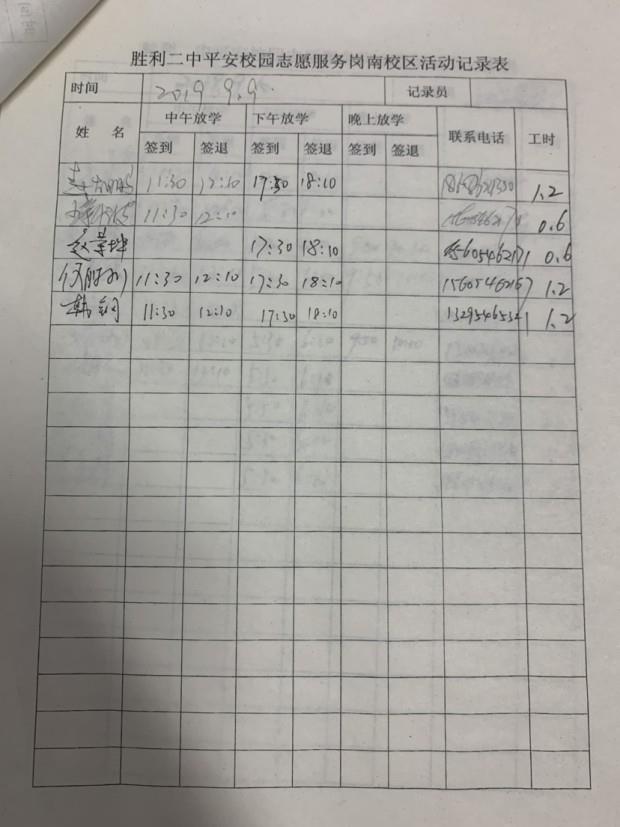 胜利二中平安校园志愿服务岗南校区活动记录表
时间 2019 9.9 记录员
姓 名 中午放学 下午放学 晚上放学 联系电话 工时
签到 签退 签到 签退 签到 签退
11:30 12:10 17:30 18:10 1.2
11:30 12:10 0.6
赵荣坤 17:30 18:10 15605462171 0.6
11:30 12:10 17:30 18:10 15605462167 1.2
韩钢 11:30 12:10 17:30 18:10 13295465341 1.2